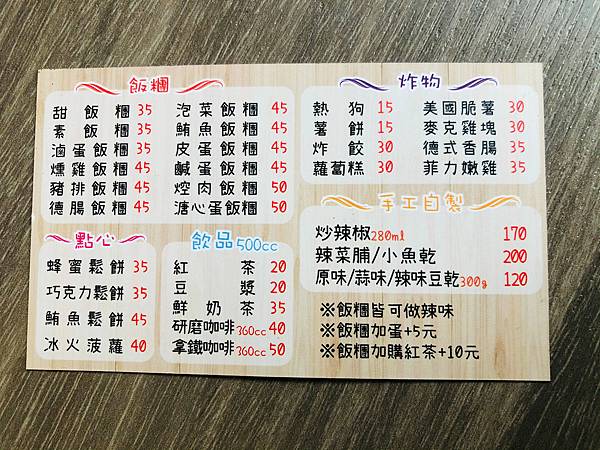 飯糰
甜飯糰 35 泡菜飯糰 45
素飯糰 35 鮪魚飯糰 45
滷蛋飯糰 35 皮蛋飯糰 45
燻雞飯糰 45 鹹蛋飯糰 45
豬排飯糰 45 焢肉飯糰 50
德腸飯糰 45 溏心蛋飯糰 50
炸物
熱狗 15 美國脆薯 30
薯餅 15 麥克雞塊 30
炸餃 30 德式香腸 35
蘿蔔糕 30 菲力嫩雞 35
點心
蜂蜜鬆餅 35
巧克力鬆餅 35
鮪魚鬆餅 45
冰火菠蘿 40
飲品500cc
紅茶 20
豆漿 20
鮮奶茶 35
研磨咖啡360cc 40
拿鐵咖啡360cc 50
手工自製
炒辣椒280ml 170
辣菜脯/小魚乾 200
原味/蒜味/辣味豆乾300g 120
※飯糰皆可做辣味
※飯糰加蛋+5元
※飯糰加購紅茶+10元